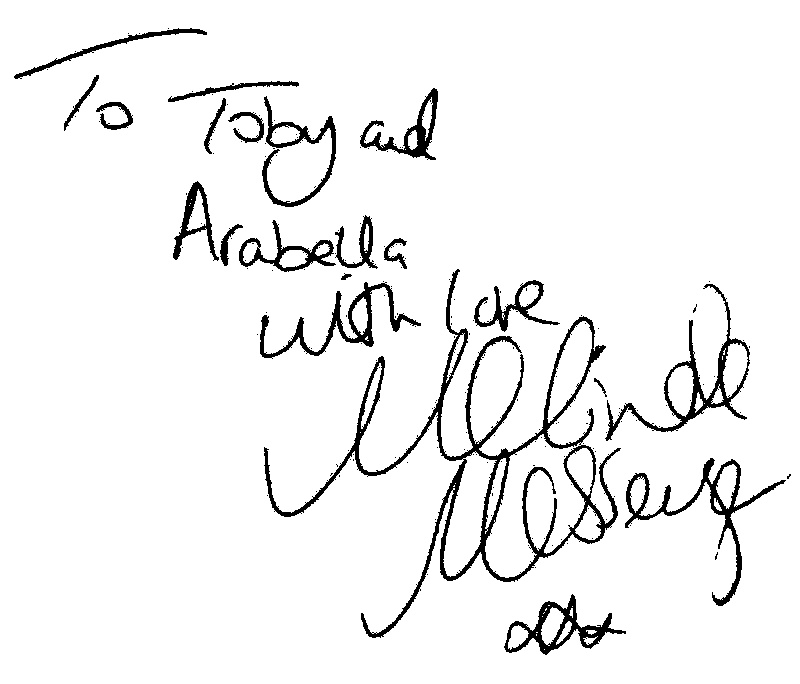 To Toby and
Arabella
with love
Melinda
Messenger
xxx